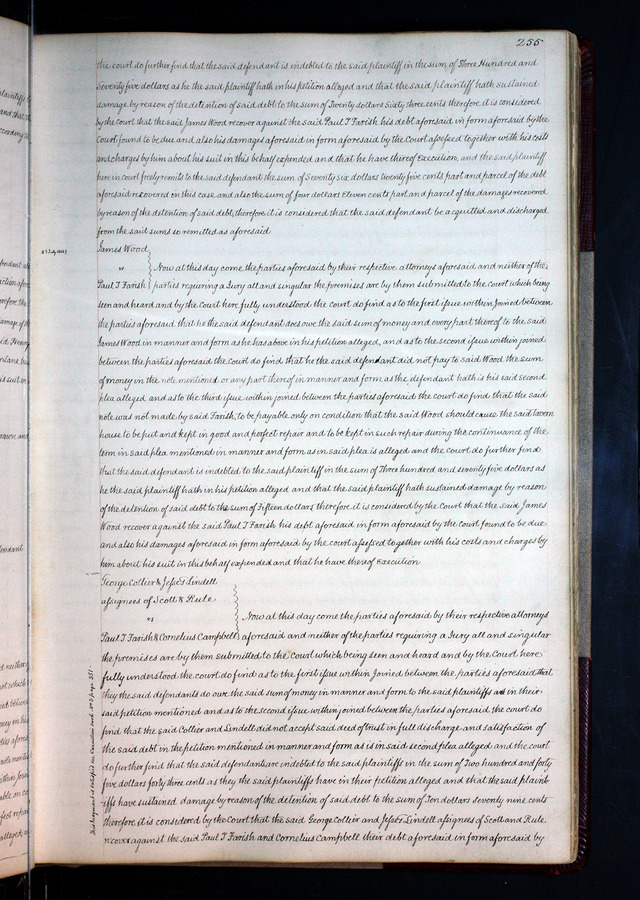 255
the court do further find that the said defendant is indebted to the said plaintiff in the sum of Three Hundred and
Seventy five dollars as he the said plaintiff hath in his petition alleged and that the said plaintiff hath sustained
damage by reason of the detention of said debt to the sum of Twenty dollars Sixty three cents therefore it is considered
by the court that the said James Wood recover against the said Paul T Farish his debt aforesaid in form aforesaid by the
Court found to be due and also his damages aforesaid in form aforesaid by the Court assessed together with his costs
and charges by him about his suit in this behalf expended and that he have thereof execution, and the said plaintiff
here in court freely remits to the said defendant the sum of Seventy six dollars twenty five cents part and parcel of the debt
aforesaid recovered in this case and also the sum of four dollars Eleven cents part and parcel of the damages recovered
by reason of the detention of said debt, therefore it is considered that the said defendant be acquitted and discharged
from the said sums so remitted as aforesaid
James Wood
vs Now at this day come the parties aforesaid by their respective attorneys aforesaid and neither of the
Paul T Farish parties requiring a Jury all and singular the premises are by them submitted to the court which being
seen and heard and by the Court here fully understood the court do find as to the first issue within Joined between
the parties aforesaid that he the said defendant does owe the said sum of money and every part thereof to the said
James Wood in manner and form as he has above in his petition alleged, and as to the second issue within joined
between the parties aforesaid the court do find that he the said defendant did not pay to said Wood the sum
of money in the note mentioned or any part thereof in manner and form as the defendant hath is his said second
plea alleged and as to the third issue within joined between the parties aforesaid the court do find that the said
note was not made by said Farish to be payable only on condition that the said Wood should cause the said tavern
house to be put and kept in good and perfect repair and to be kept in such repair during the continuance of the
term in said plea mentioned in manner and form as in said plea is alleged and the court do further find
that the said defendant is indebted to the said plaintiff in the sum of Three hundred and seventy five dollars as
he the said plaintiff hath in his petition alleged and that the said plaintiff hath sustained damage by reason
of the detention of said debt to the sum of Fifteen dollars therefore it is considered by the Court that the said James
Wood recover against the said Paul T Farish his debt aforesaid in form aforesaid by the court found to be due
and also his damages aforesaid in form aforesaid by the court assessed together with his costs and charges by
him about his suit in this behalf expended and that he have thereof Execution
George Collier & Jesse Lindell
assignees of Scott & Rule
vs Now at this day come the parties aforesaid by their respective attorneys
Paul T Farish & Cornelius Campbell aforesaid and neither of the parties requiring a Jury all and singular
the premises are by them submitted to the court which being seen and heard and by the Court here
fully understood the court do find as to the first issue within Joined between the parties aforesaid that
they the said defendants do owe the said sum of money in manner and form to the said plaintiffs as in their
said petition mentioned and as to the second issue within joined between the parties aforesaid the court do
find that the said Collier and Lindell did not accept said deed of trust in full discharge and satisfaction of
the said debt in the petition mentioned in manner and form as is in said second plea alleged and the court
do further find that the said defendants are indebted to the said plaintiffs in the sum of Two hundred and forty
five dollars forty three cents as they the said plaintiffs have in their petition alleged and that the said plaint
iffs have sustained damage by reason of the detention of said debt to the sum of Ten dollars seventy nine cents
therefore it is considered by the Court that the said George Collier and Jesse Lindell assignees of Scott and Rule
recover against the said Paul T Farish and Cornelius Campbell their debt aforesaid in form aforesaid by